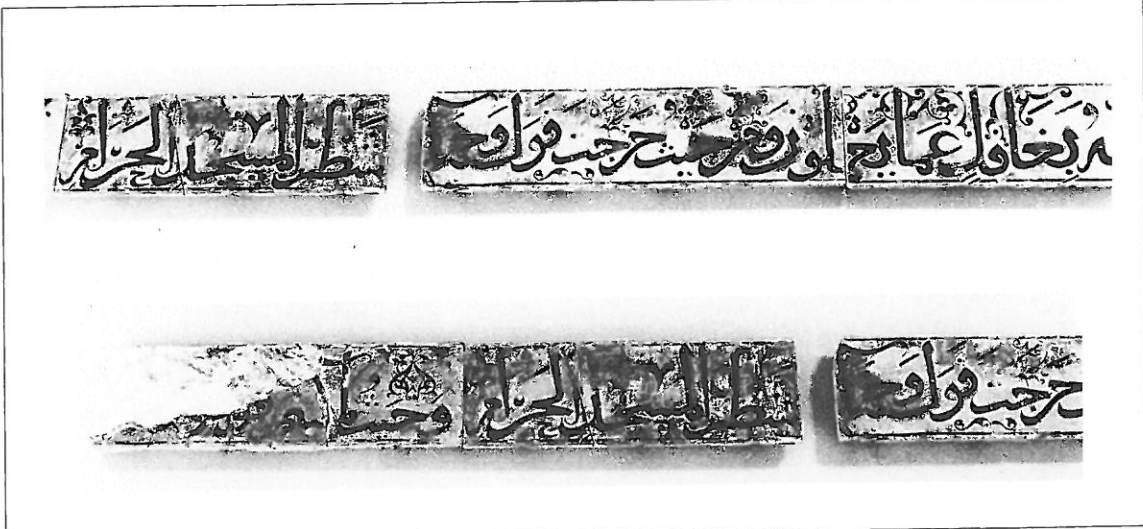 بغافل عما تعملون ومن حيث خرجت فول وجهك شطر المسجد الحرام
خرجت فول وجهك شطر المسجد الحرام وحيث